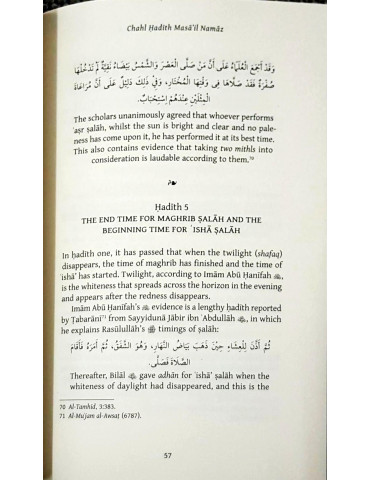 Chahl Ḥadīth Masā'il Namāz
وَقَدْ أَجْمَعَ الْعُلَمَاءُ عَلَى أَنَّ مَنْ صَلَّى الْعَصْرَ وَالشَّمْسُ بَيْضَاءُ نَقِيَّةٌ لَمْ تَدْخُلْهَا
صُفْرَةٌ فَقَدْ صَلَّاهَا فِي وَقْتِهَا الْمُخْتَارِ، وَفِي ذَلِكَ دَلِيْلٌ عَلَى أَنَّ مُرَاعَاةَ
الْمِثْلَيْنِ عِنْدَهُمْ اسْتِحْبَابٌ.
The scholars unanimously agreed that whoever performs
ʿaṣr ṣalāh, whilst the sun is bright and clear and no pale-
ness has come upon it, he has performed it at its best time.
This also contains evidence that taking two mithls into
consideration is laudable according to them.⁷⁰
Ḥadīth 5
THE END TIME FOR MAGHRIB ṢALĀH AND THE
BEGINNING TIME FOR ʿISHĀ ṢALĀH
In ḥadīth one, it has passed that when the twilight (shafaq)
disappears, the time of maghrib has finished and the time of
ʿishā has started. Twilight, according to Imām Abū Ḥanīfah
is the whiteness that spreads across the horizon in the evening
and appears after the redness disappears.
Imām Abū Ḥanīfah's evidence is a lengthy ḥadīth reported
by Ṭabarānī⁷¹ from Sayyidunā Jābir ibn ʿAbdullāh, in which
he explains Rasūlullāh's timings of ṣalāh:
ثُمَّ أَذَّنَ لِلْعِشَاءِ حِيْنَ ذَهَبَ بَيَاضُ النَّهَارِ، وَهُوَ الشَّفَقُ، ثُمَّ أَمَرَهُ فَأَقَامَ
الصَّلَاةَ فَصَلَّى.
Thereafter, Bilāl gave adhān for ʿishā' ṣalāh when the
whiteness of daylight had disappeared, and this is the
70 Al-Tamhīd, 3:383.
71 Al-Muʿjam al-Awsaṭ (6787).
57